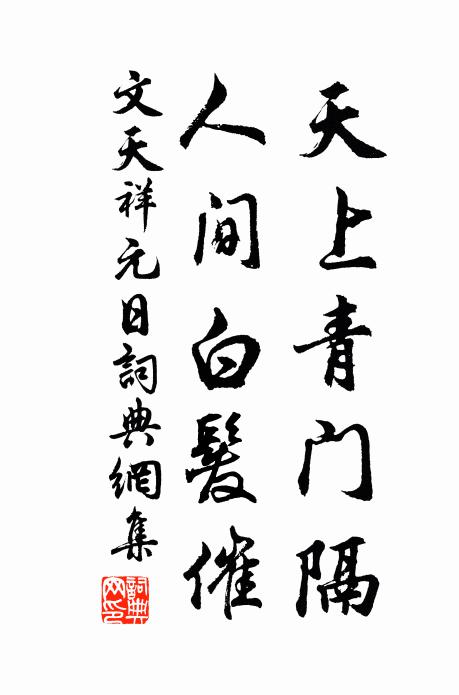 天上青门隔
人间白髮催
文天祥元日詞典網集
詞典网印